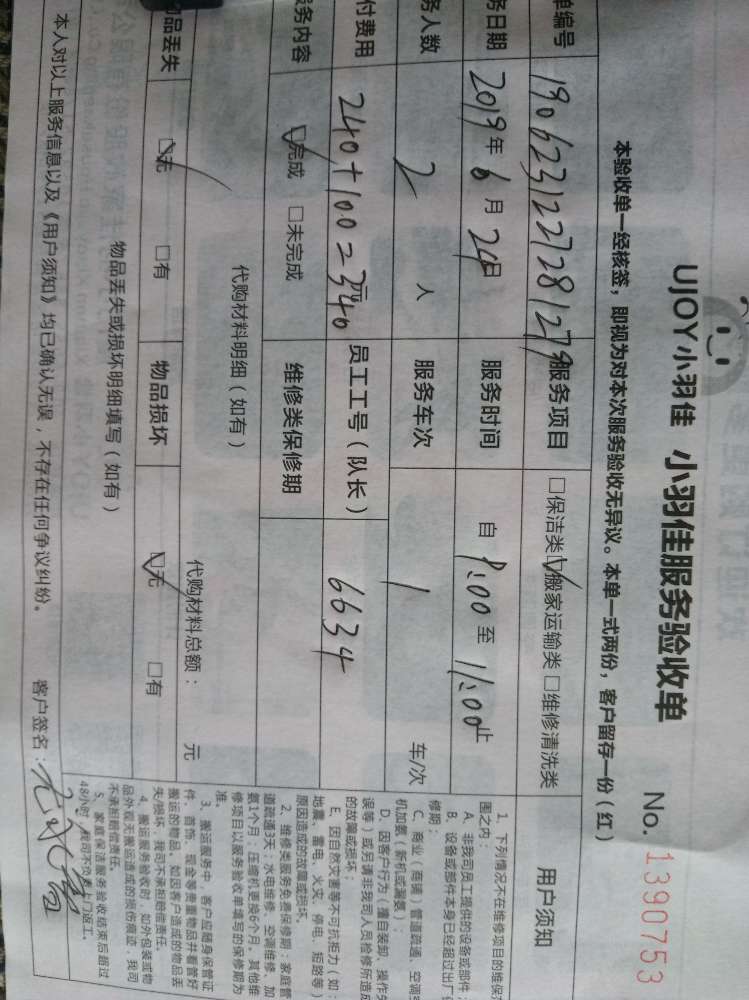 UJOY小羽佳 小羽佳服务验收单 No. 1390753
本验收单一经核签，即视为对本次服务验收无异议。本单一式两份，客户留存一份（红）
单编号 1906231227281279 服务项目 □保洁类 ☑搬家运输类 □维修清洗类
务日期 2019年6月24日 服务时间 自 9:00 至 11:00止
务人数 2 人 服务车次 1 车/次
付费用 240+100=340 员工工号（队长） 6634
务内容 ☑完成 □未完成 维修类保修期
代购材料明细（如有） 代购材料总额： 元
物品丢失 ☑无 □有 物品损坏 ☑无 □有
物品丢失或损坏明细填写（如有）
本人对以上服务信息以及《用户须知》均已确认无误，不存在任何争议纠纷。 客户签名：
用户须知
1、下列情况不在维修项目的维保范
围之内：
A、非我司员工提供的设备或部件；
B、设备或部件本身已经超过出厂
修期；
C、商业（商铺）管道疏通、空调
机加氨（新机或漏氨）；
D、因客户行为（擅自装卸、操作失
误等）或另请非我司人员检修所造成
的故障或损坏；
E、因自然灾害等不可抗拒力（如：
地震、雷电、火灾、停电、短路等）
原因造成的故障或损坏。
2、维修类服务免费保修期：家庭管
道疏通3天；水电维修、空调维修、加
氨1个月；压缩机更换6个月，其他维
修项目以服务验收单填写的保修期为
准。
3、搬运服务中，客户应随身保管证
件、首饰、现金等贵重物品并看管好
搬运的物品。如因客户造成的物品丢
失/损坏，我司不承担赔偿责任。
4、搬运服务验收时，如外包装或物
品外观无搬运造成的损伤痕迹，我司
不承担赔偿责任。
5、家庭保洁服务验收结束后超过
48小时，我司不负责上门返工。